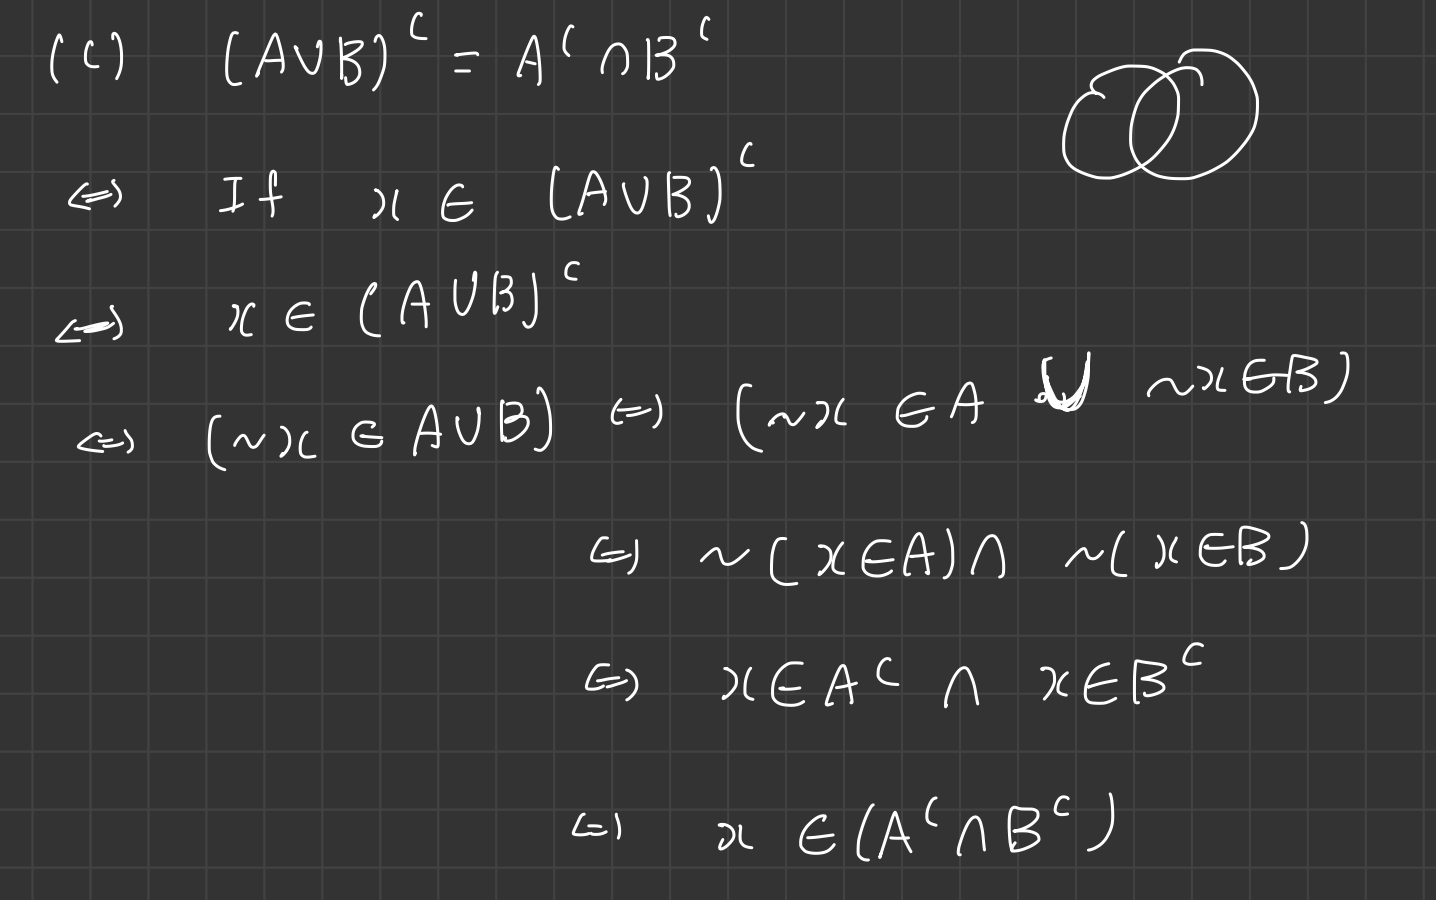 (c) (A∪B)ᶜ = Aᶜ ∩ Bᶜ
⇔ If x ∈ (A∪B)ᶜ
⇔ x ∈ (A∪B)ᶜ
⇔ (~x ∈ A∪B) ⇔ (~x ∈ A ∪ ~x∈B)
⇔ ~(x∈A) ∩ ~(x∈B)
⇔ x∈Aᶜ ∩ x∈Bᶜ
⇔ x ∈(Aᶜ∩Bᶜ)